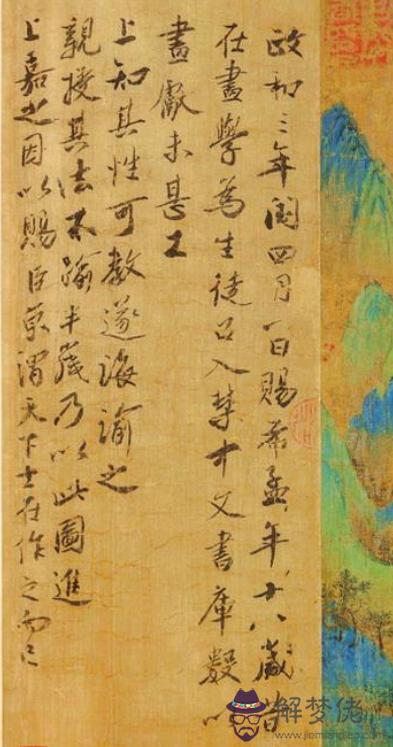 政和三年閏四月一日賜希孟年十八歲昔
在畫學為生徒召入禁中文書庫數以
畫獻未甚工
上知其性可教遂誨諭之
親授其法不踰半歲乃以此圖進
上嘉之因以賜臣京謂天下士在作之而已
解梦佬
www.jiemenglao.com